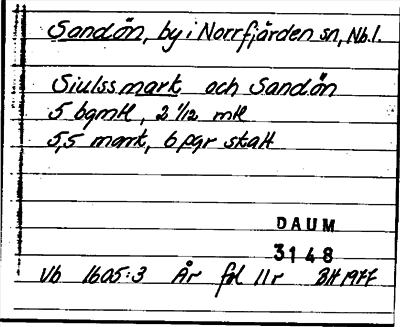 Sandön, by i Norrfjärden sn, Nb.l.
Siulssmark och Sandön
5 bgmtl, 2 1/12 mtl
5,5 mark, 6 pgr skatt
DAUM
3148
Vb 1605:3 År fol 11r BH 1977